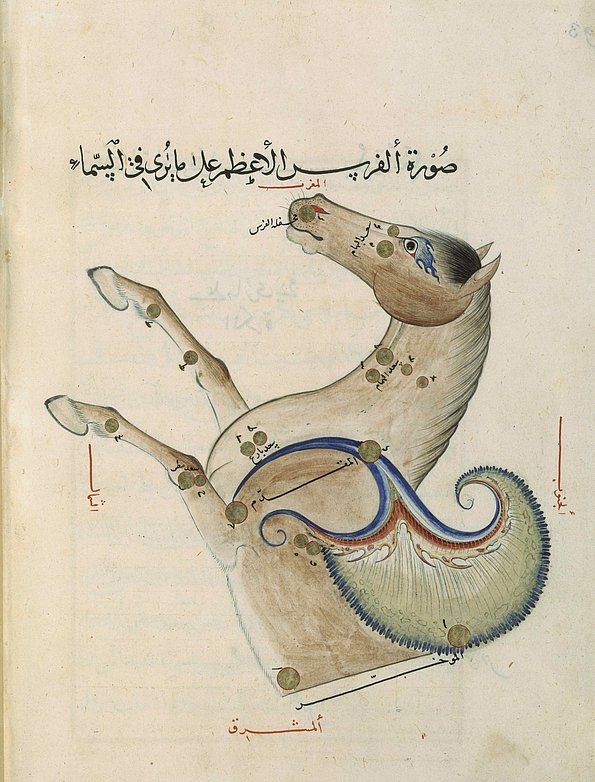 صُوْرَة ألفرس الأعظم على ما يُرى في السّماء
المغرب
جحفلة الفرس
سعد البهام
سعد الهمام
سعد بارع
سعد مطر
المقدّم
الجنوب
الشمال
الموخّر
ألمشرق